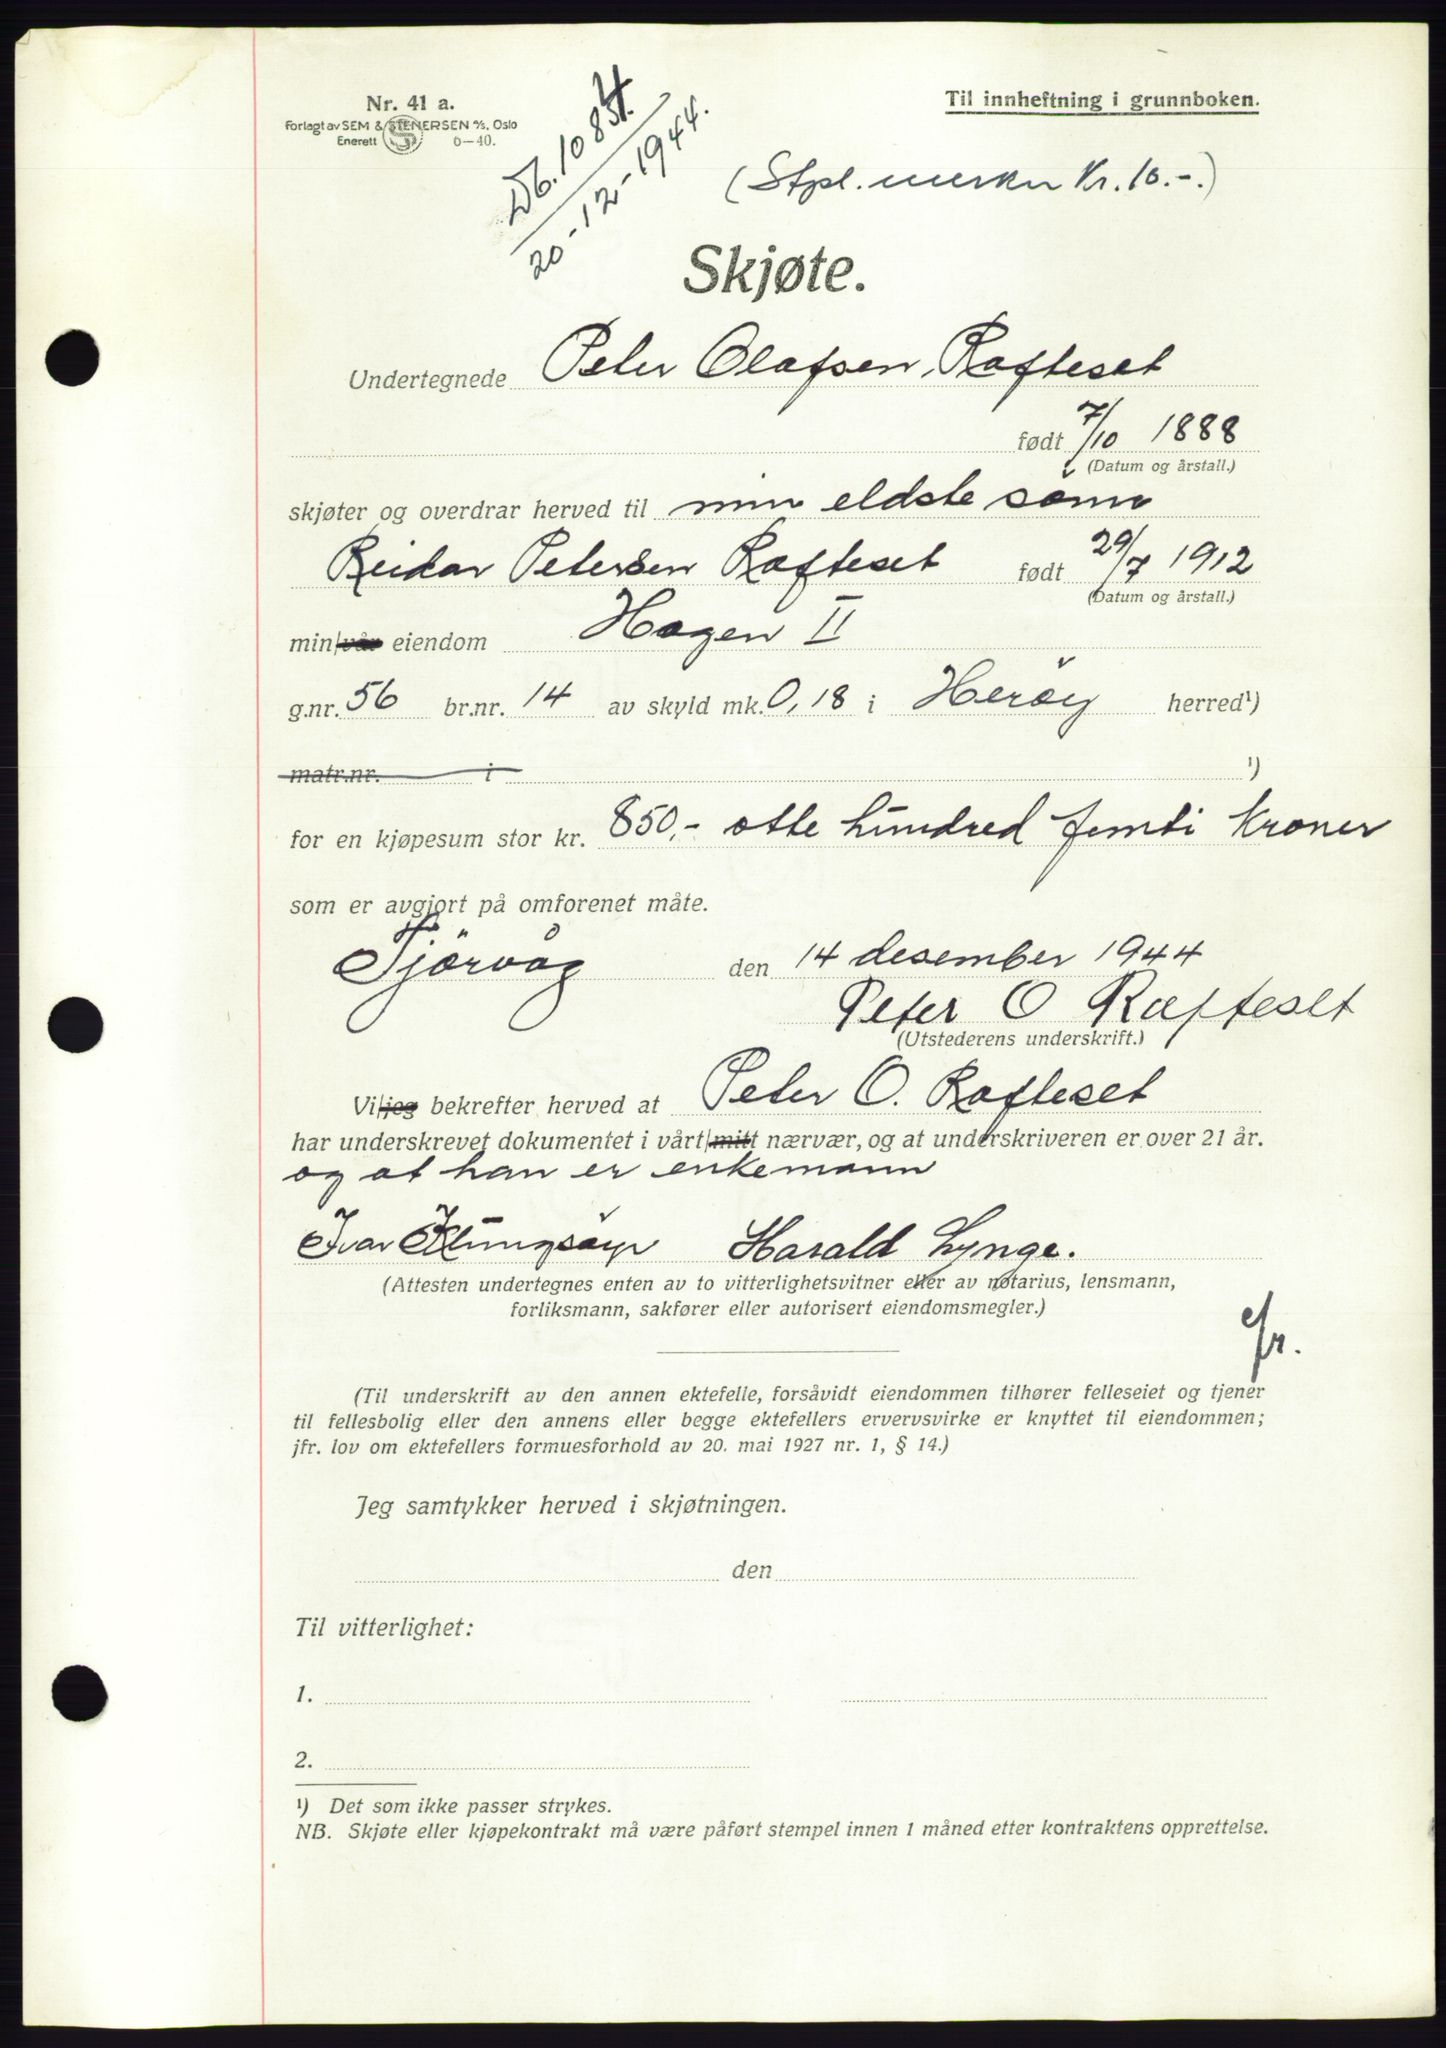 Nr. 41 a.
Forlagt av SEM & STENERSEN A/S, Oslo
Enerett 6—40.
Til innheftning i grunnboken.
Db. 1084.
20-12-1944.
(Stpl. merker Kr. 10.-.)
Skjøte.
Undertegnede Peter Olafsen, Rafteset
født 7/10 1888
(Datum og årstall.)
skjøter og overdrar herved til min eldste sönn
Reidar Petersen Rafteset født 29/7 1912
(Datum og årstall.)
min/vår eiendom Hagen II
g.nr. 56 br.nr. 14 av skyld mk. 0,18 i Heröy herred¹)
matr.nr. i ¹)
for en kjøpesum stor kr. 850,- otte hundred femti Kroner
som er avgjort på omforenet måte.
Tjörvåg den 14 desember 1944
Peter O Rafteset
(Utstederens underskrift.)
Vi/jeg bekrefter herved at Peter O. Rafteset
har underskrevet dokumentet i vårt/mitt nærvær, og at underskriveren er over 21 år.
og at han er enkemann
Ivar Klungsöyr Harald Lynge.
(Attesten undertegnes enten av to vitterlighetsvitner eller av notarius, lensmann,
forliksmann, sakfører eller autorisert eiendomsmegler.)
(Til underskrift av den annen ektefelle, forsåvidt eiendommen tilhører felleseiet og tjener
til fellesbolig eller den annens eller begge ektefellers ervervsvirke er knyttet til eiendommen;
jfr. lov om ektefellers formuesforhold av 20. mai 1927 nr. 1, § 14.)
Jeg samtykker herved i skjøtningen.
den
Til vitterlighet:
1.
2.
¹) Det som ikke passer strykes.
NB. Skjøte eller kjøpekontrakt må være påført stempel innen 1 måned etter kontraktens opprettelse.